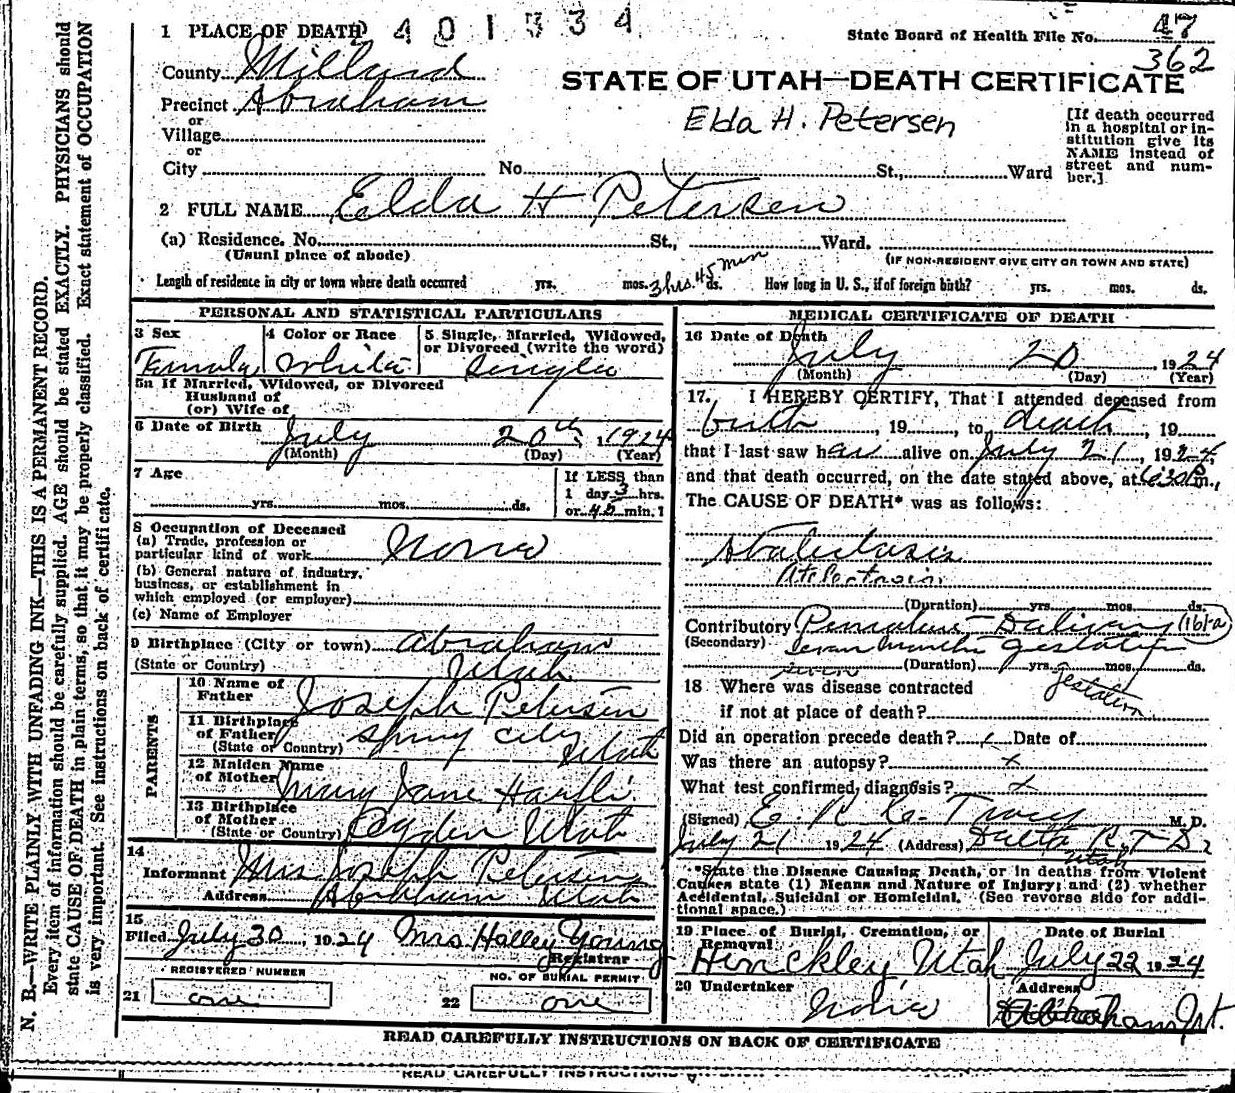 401334
State Board of Health File No. 47
362
1 PLACE OF DEATH
County Millard
STATE OF UTAH—DEATH CERTIFICATE
Precinct Abraham
or
Village
or
City
Elda H. Petersen
[If death occurred
in a hospital or in-
stitution give its
NAME instead of
street and num-
ber.]
No. St., Ward
2 FULL NAME Elda H Petersen
(a) Residence. No. St., Ward.
(Usual place of abode)
(IF NON-RESIDENT GIVE CITY OR TOWN AND STATE)
Length of residence in city or town where death occurred yrs. mos. 3 hrs. 45 min ds. How long in U. S., if of foreign birth? yrs. mos. ds.
PERSONAL AND STATISTICAL PARTICULARS
3 Sex
Female
4 Color or Race
White
5 Single, Married, Widowed,
or Divorced (write the word)
Single
5a If Married, Widowed, or Divorced
Husband of
(or) Wife of
6 Date of Birth July 20th 1924
(Month) (Day) (Year)
7 Age
yrs. mos. ds.
If LESS than
1 day 3 hrs.
or 45 min.
8 Occupation of Deceased
(a) Trade, profession or
particular kind of work None
(b) General nature of industry,
business, or establishment in
which employed (or employer)
(c) Name of Employer
9 Birthplace (City or town) Abraham
(State or Country) Utah
PARENTS
10 Name of
Father Joseph Petersen
11 Birthplace
of Father
(State or Country) Spring City Utah
12 Maiden Name
of Mother Mary Jane
13 Birthplace
of Mother
(State or Country) Ogden Utah
14
Informant Mrs Joseph Petersen
Address Abraham Utah
15
Filed July 30, 1924 Mrs Halley Young
Registrar
REGISTERED NUMBER
21 one
NO. OF BURIAL PERMIT
22 one
MEDICAL CERTIFICATE OF DEATH
16 Date of Death
July 20 1924
(Month) (Day) (Year)
17. I HEREBY CERTIFY, That I attended deceased from
birth, 19 to death, 19
that I last saw her alive on July 21, 1924,
and that death occurred, on the date stated above, at 6:30 P.m.,
The CAUSE OF DEATH* was as follows:
Atelectasis
Atelectasis
(Duration) yrs. mos. ds.
Contributory Premature Delivery 161-a
(Secondary) Seven months gestation
seven (Duration) yrs. mos. ds.
gestation
18 Where was disease contracted
if not at place of death?
Did an operation precede death? Date of
Was there an autopsy? x
What test confirmed diagnosis? x
(Signed) E. R. C. Tracy M. D.
July 21 1924 (Address) Delta R.F.D.
Utah
*State the Disease Causing Death, or in deaths from Violent
Causes state (1) Means and Nature of Injury; and (2) whether
Accidental, Suicidal or Homicidal. (See reverse side for addi-
tional space.)
19 Place of Burial, Cremation, or
Removal
Hinckley Utah
Date of Burial
July 22 1924
20 Undertaker
None
Address
Abraham, Ut.
READ CAREFULLY INSTRUCTIONS ON BACK OF CERTIFICATE
READ CAREFULLY INSTRUCTIONS
N. B.—WRITE PLAINLY WITH UNFADING INK—THIS IS A PERMANENT RECORD.
Every item of information should be carefully supplied. AGE should be stated EXACTLY. PHYSICIANS should
state CAUSE OF DEATH in plain terms, so that it may be properly classified. Exact statement of OCCUPATION
is very important. See instructions on back of certificate.